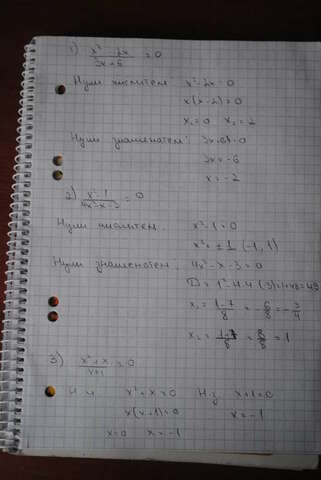 1) x² - 2x / 3x+6 = 0
Нули числител: x²-2x=0
x(x-2)=0
x₁=0 x₂=2
Нули знаменател: 3x+6=0
3x=-6
x=-2
2) x²-1 / 4x²-x-3 = 0
Нули числител. x²-1=0
x²= ±1 (-1, 1)
Нули знаменател. 4x²-x-3=0
D=1²+4·4·(3)=1+48=49
x₁= 1-7/8 = -6/8 = -3/4
x₂= 1+7/8 = 8/8 = 1
3) x²+x / x+1 = 0
Н.ч. x²+x=0 Н.з x+1=0
x(x+1)=0 x=-1
x=0 x=-1